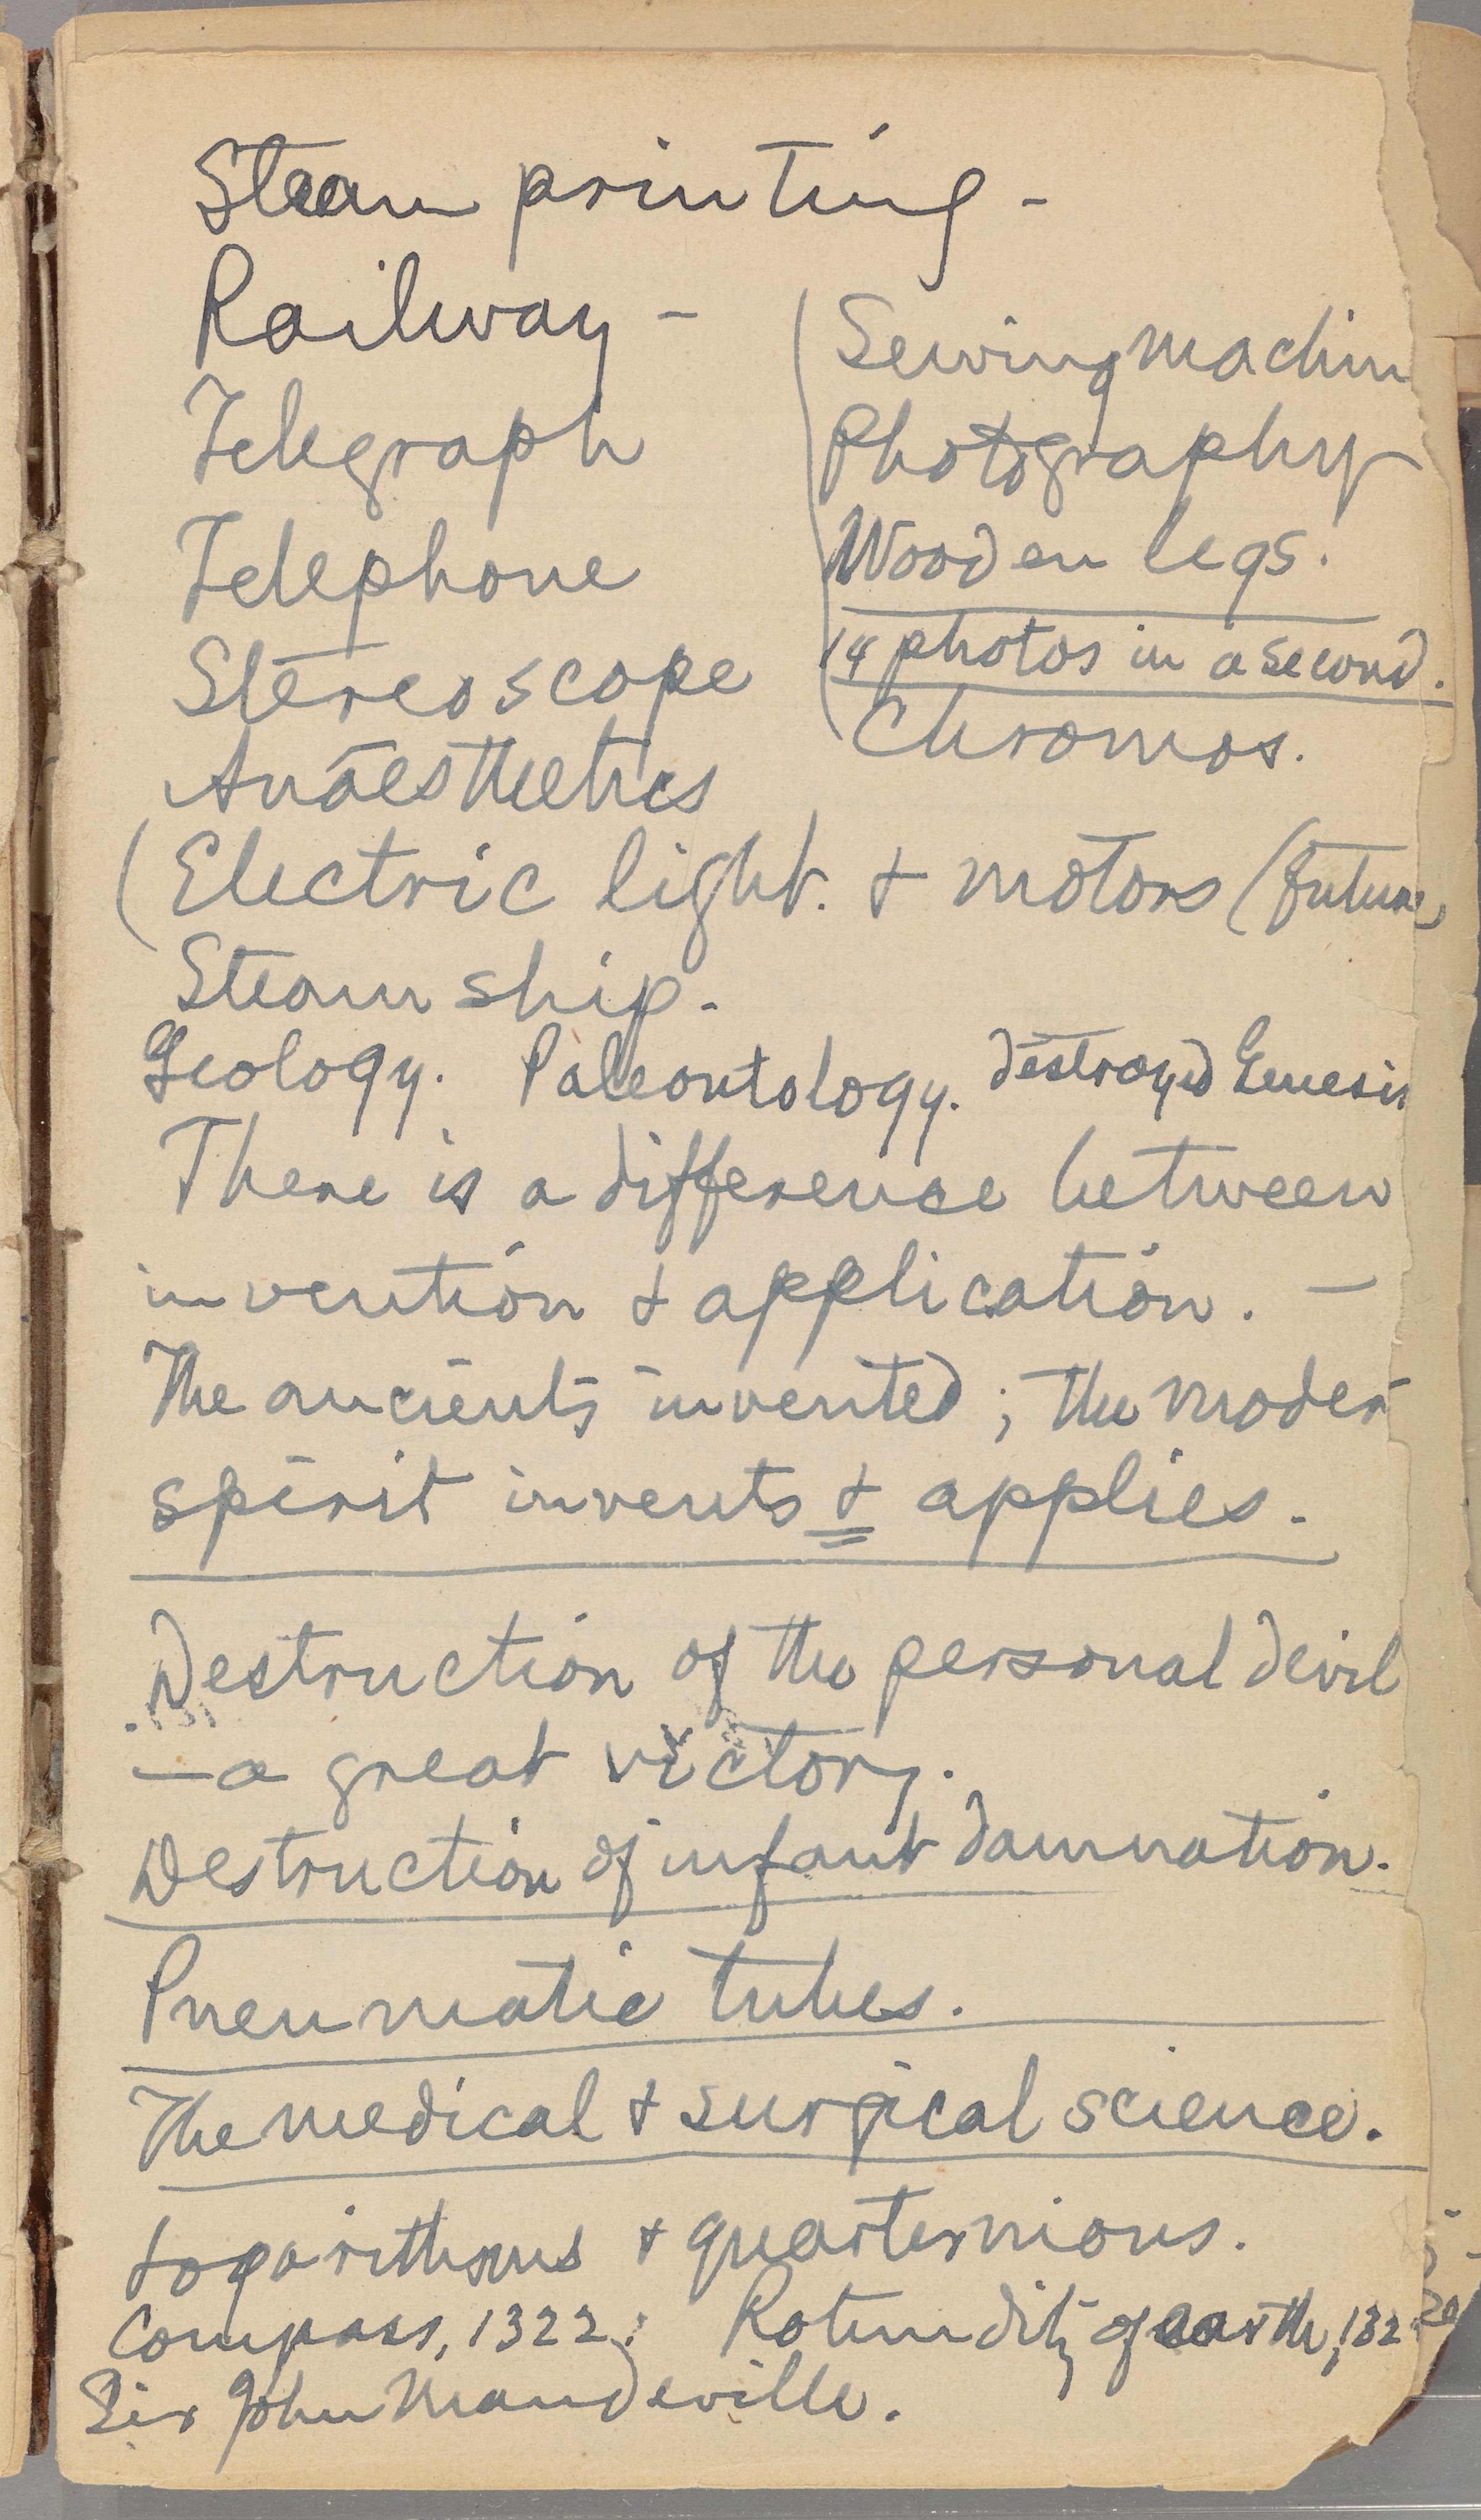 Steam printing -
Railway -
Telegraph
Telephone
Stereoscope
Anaesthetics
(Sewing machin
Photography
Wooden legs.
14 photos in a second.
Chromos.
(Electric light. & motors (future)
Steam ship.
Geology. Paleontology. destroyed Genesis
There is a difference between
invention & application. —
The ancients invented; the moder
spirit invents & applies.
Destruction of the personal devil
—a great victory.
Destruction of infant damnation.
Pneumatic tubes.
The medical & surgical science.
Logarithms & quarternions.
Compass, 1322; Rotundity of earth, 132
Sir John Mandeville.